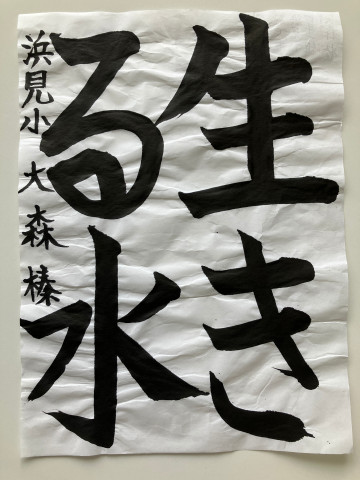 生き
る水
浜見小 大森榛